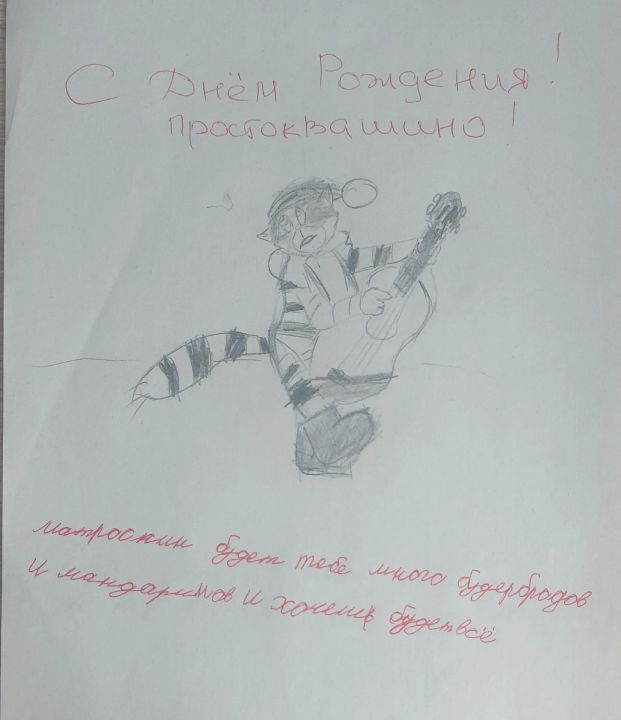 С Днём Рождения!
простоквашино!
матроскин будет тебе много будербродов
и мандаринов и хочешь будет всё